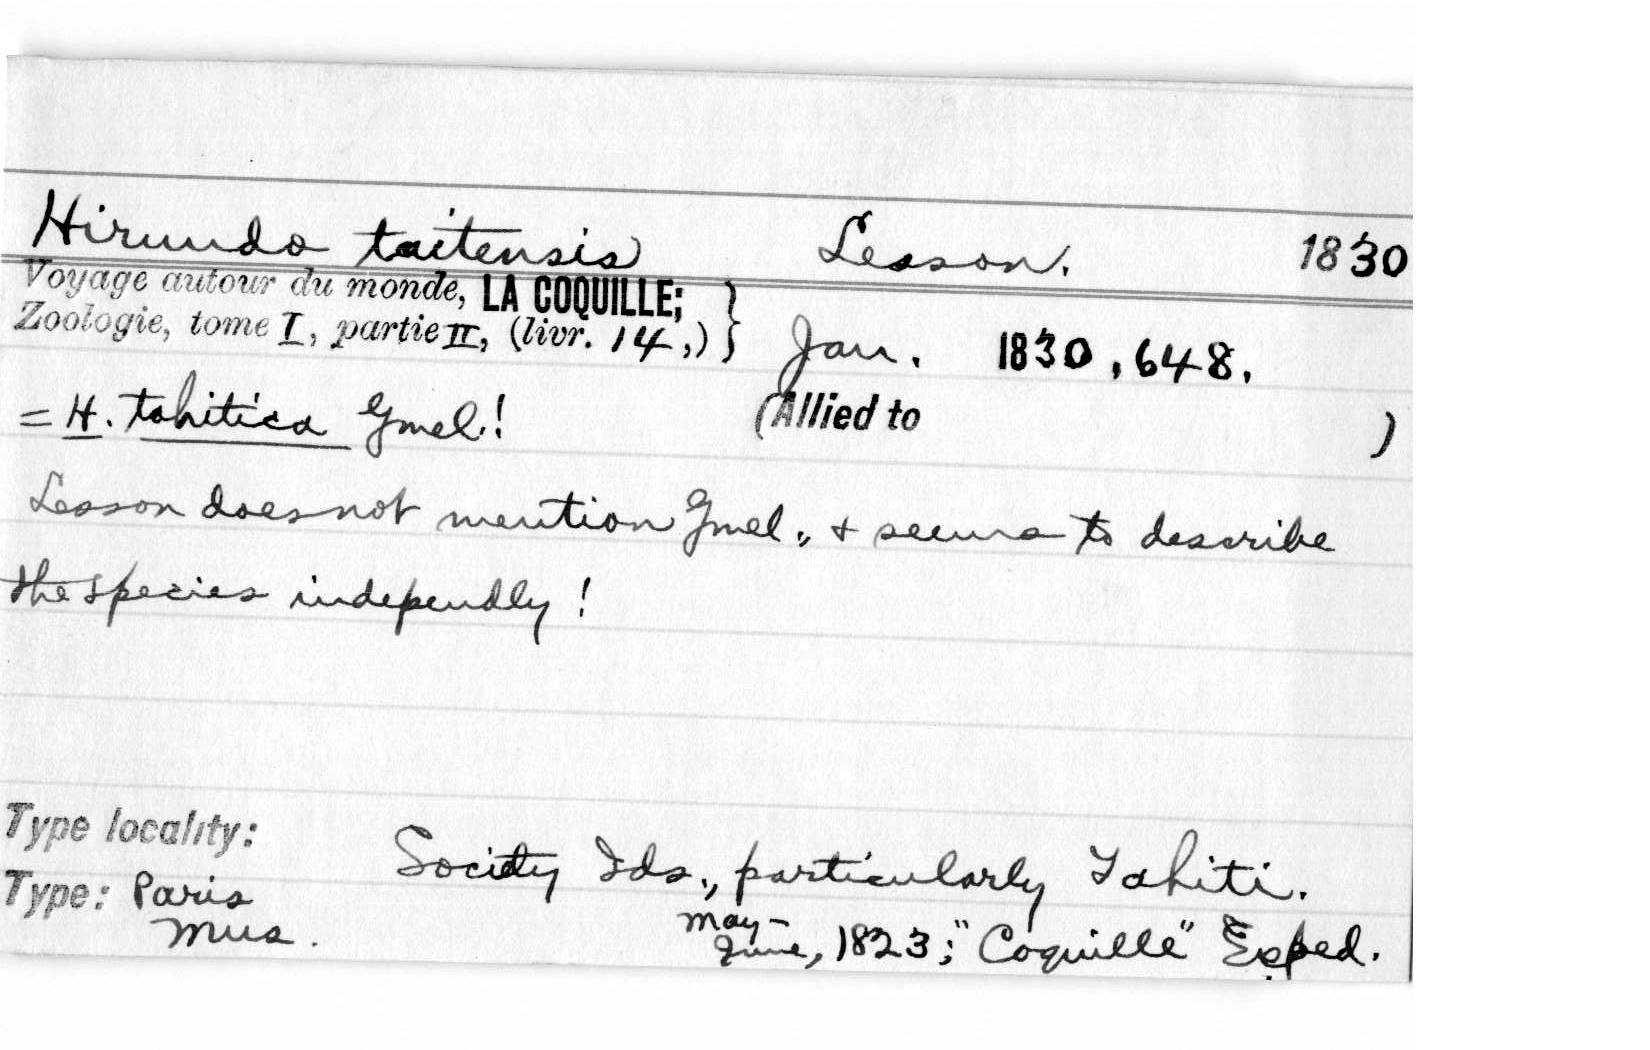 Hirundo taitensis Lesson. 1830
Voyage autour du monde, LA COQUILLE;
Zoologie, tome I, partie II, (livr. 14,) } Jan. 1830, 648.
= H. tahitica Gmel.! (Allied to )
Lesson does not mention Gmel., + seems to describe
the species independly!
Type locality: Society Ids., particularly Tahiti.
Type: Paris Mus.
May-June, 1823; "Coquille" Exped.